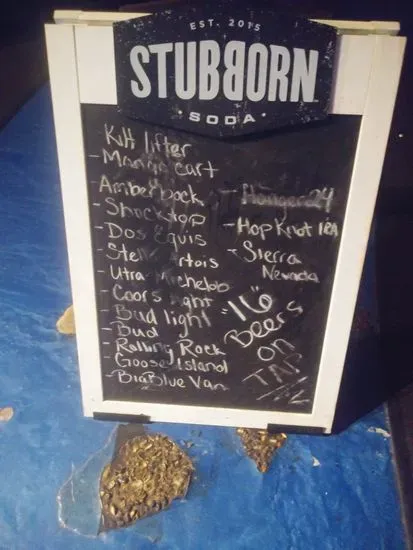 EST. 2015
STUBBORN
SODA
Kilt lifter
- Mango cart
- Amberbock
- Shocktop
- Dos Equis
- Stella Artois
- Utra Michelob
- Coors light
- Bud light
- Bud
- Rolling Rock
- Goose Island
- Big Blue Van
- Hanger 24
- Hop Knot IPA
- Sierra
Nevada
"16"
Beers
on
TAP